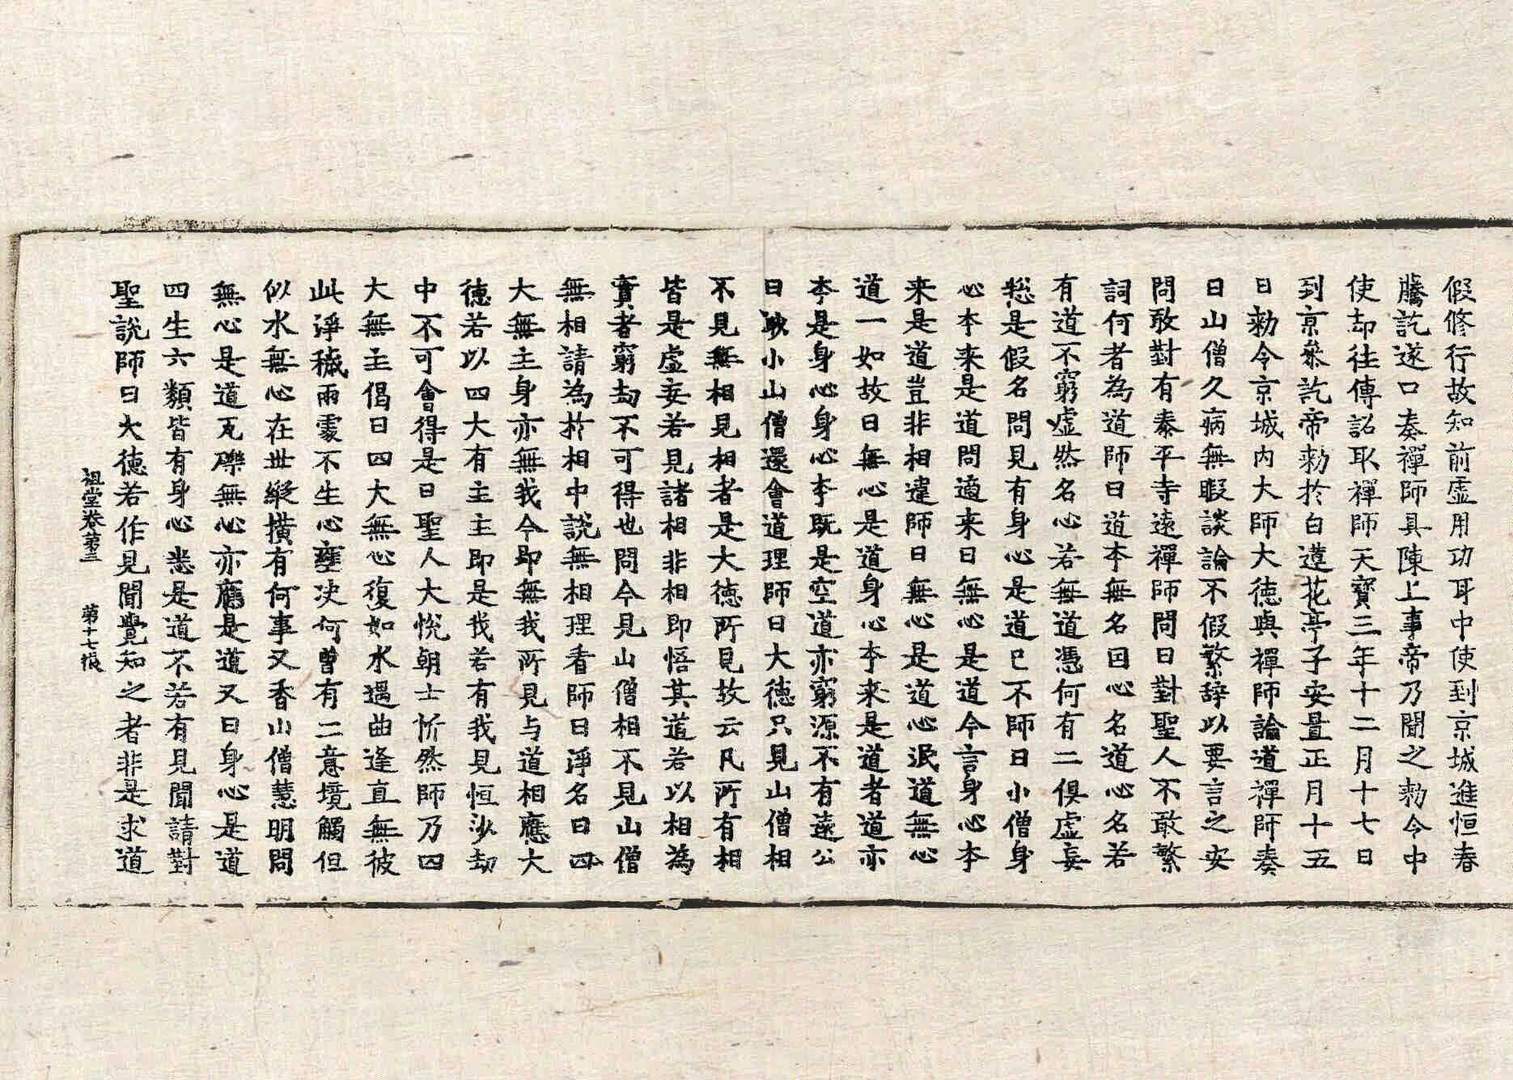 假修行故知前虛用功耳中使到京城進恒春
騰訖遂口奏禪師具陳上事帝乃聞之勑令中
使却往傳詔取禪師天寶三年十二月十七日
到京叅訖帝勑於白蓮花亭子安置正月十五
日勑令京城內大師大德與禪師論道禪師奏
曰山僧久病無暇談論不假繁辞以要言之安
問敢對有泰平寺遠禪師問曰對聖人不敢繁
詞何者為道師曰道本無名因心名道心名若
有道不窮虛然名心若無道憑何有二俱虛妄
惣是假名問見有身心是道已不師曰小僧身
心本来是道問適来曰無心是道今言身心本
来是道豈非相違師曰無心是道心泯道無心
道一如故曰無心是道身心本来是道者道亦
本是身心身心本既是空道亦窮源不有遠公
曰眇小山僧還會道理師曰大德只見山僧相
不見無相見相者是大德所見故云凡所有相
皆是虛妄若見諸相非相即悟其道若以相為
實者窮劫不可得也問今見山僧相不見山僧
無相請為於相中說無相理看師曰淨名曰四
大無主身亦無我今即無我所見与道相應大
德若以四大有主主即是我若有我見恒沙劫
中不可會得是日聖人大悅朝士忻然師乃四
大無主偈曰四大無心復如水遇曲逢直無彼
此淨穢兩處不生心壅決何曾有二意境觸但
似水無心在世縱橫有何事又香山僧慧明問
無心是道瓦礫無心亦應是道又曰身心是道
四生六類皆有身心悉是道不若有見聞請對
聖說師曰大德若作見聞覺知之者非是求道
祖堂卷第三　第十七張